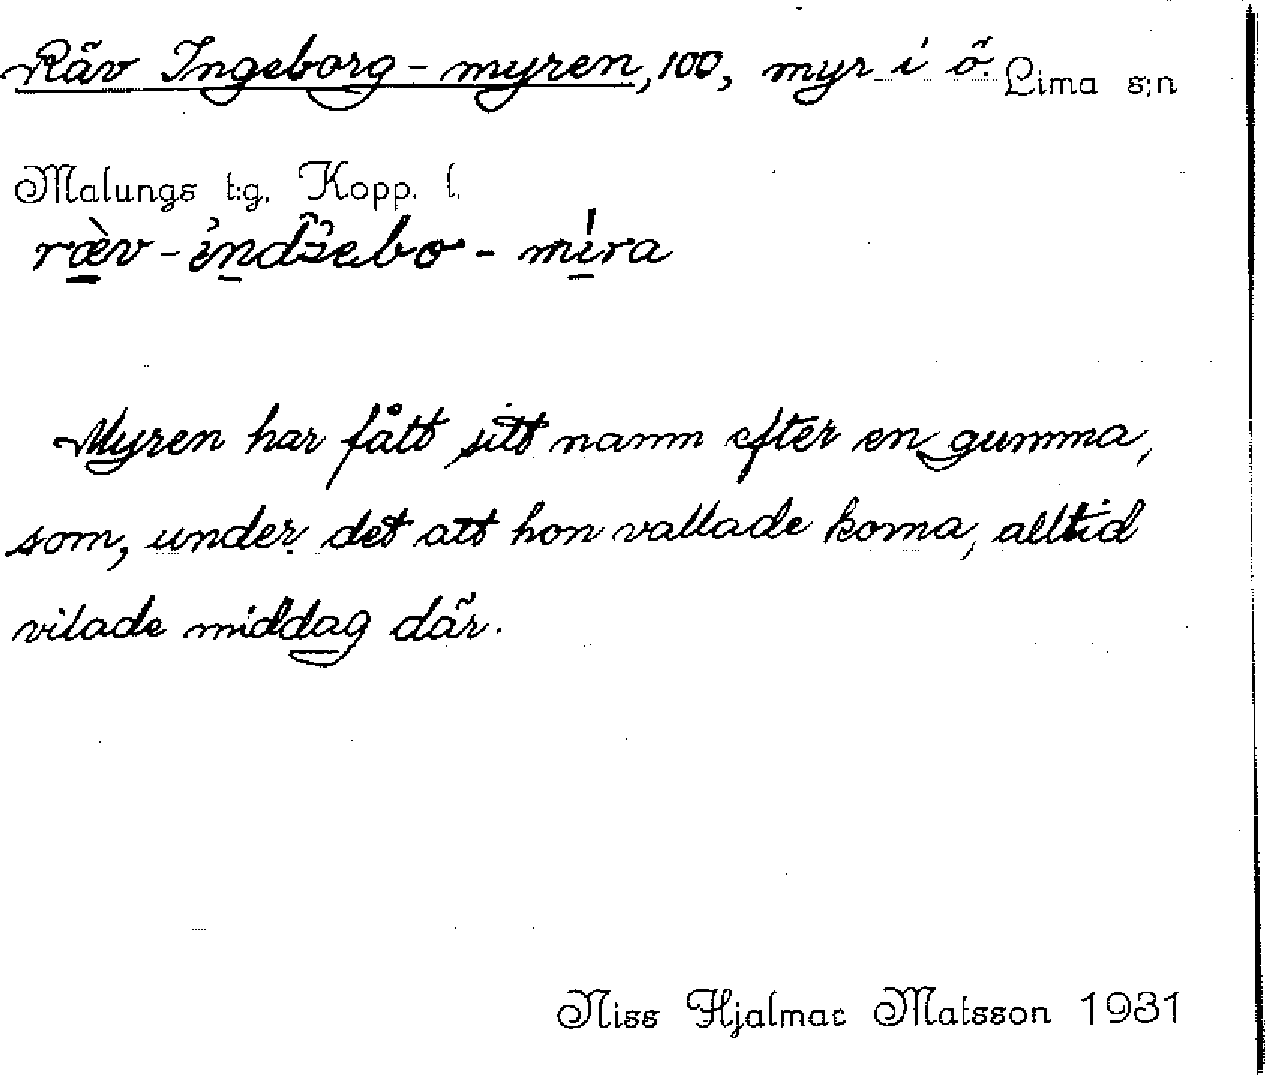 Räv Ingeborg-myren, 100, myr i ö. Lima s:n
Malungs t:g. Kopp. l.
ræ̀v-indžebo-míra
Myren har fått sitt namn efter en gumma,
som, under det att hon vallade korna, alltid
vilade middag där.
Niss Hjalmar Matsson 1931